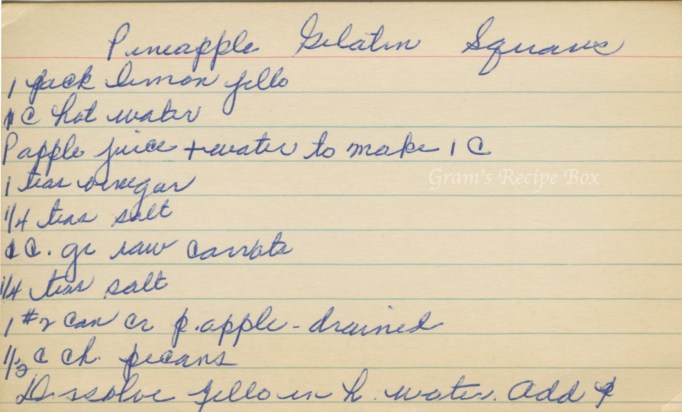 Pineapple Gelatin Squares
1 pack lemon jello
1 C hot water
P apple juice + water to make 1 C
Gram's Recipe Box
1 teas vinegar
1/4 teas salt
1 C. gr raw carrots
1/4 teas salt
1 #2 can cr p.apple - drained
1/2 C ch. pecans
Dissolve jello in h. water. Add